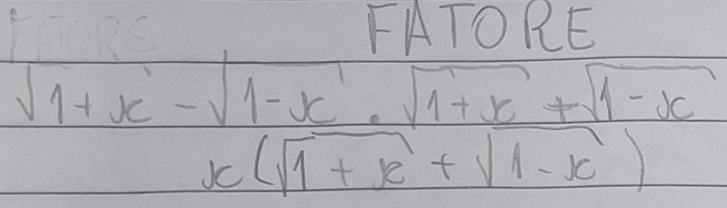 FATORE
√1+x - √1-x . √1+x + √1-x
x(√1+x + √1-x)